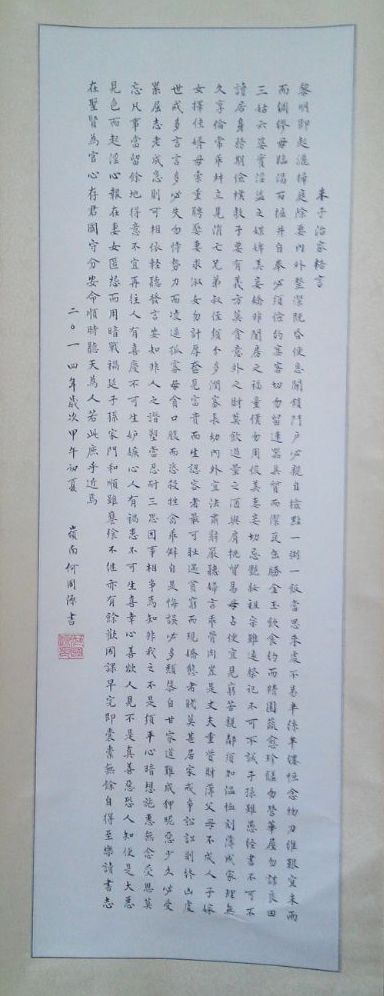 朱子治家格言
黎明即起灑掃庭除要內外整潔既昏便息關鎖門戶必親自檢點一粥一飯當思來處不易半絲半縷恒念物力維艱宜未雨
而綢繆毋臨渴而掘井自奉必須儉約宴客切勿留連器具質而潔瓦缶勝金玉飲食約而精園蔬愈珍饈勿營華屋勿謀良田
三姑六婆實淫盜之媒婢美妾嬌非閨房之福童僕勿用俊美妻妾切忌艷妝祖宗雖遠祭祀不可不誠子孫雖愚經書不可不
讀居身務期儉樸教子要有義方莫貪意外之財莫飲過量之酒與肩挑貿易毋占便宜見窮苦親鄰須加溫恤刻薄成家理無
久享倫常乖舛立見消亡兄弟叔侄須分多潤寡長幼內外宜法肅辭嚴聽婦言乖骨肉豈是丈夫重資財薄父母不成人子嫁
女擇佳婿毋索重聘娶妻求淑女勿計厚奩見富貴而生諂容者最可恥遇貧窮而現驕態者賤莫甚居家戒爭訟訟則終凶處
世戒多言言多必失勿恃勢力而凌逼孤寡毋貪口腹而恣殺牲禽乖僻自是悔誤必多頹惰自甘家道難成狎昵惡少久必受
累屈志老成急則可相依輕聽發言安知非人之譖愬當忍耐三思因事相爭焉知非我之不是須平心暗想施惠無念受恩莫
忘凡事當留餘地得意不宜再往人有喜慶不可生妒嫉心人有禍患不可生喜幸心善欲人見不是真善惡恐人知便是大惡
見色而起淫心報在妻女匿怨而用暗箭禍延子孫家門和順雖饔飧不繼亦有餘歡國課早完即囊橐無餘自得至樂讀書志
在聖賢為官心存君國守分安命順時聽天為人若此庶乎近焉
二〇一四年歲次甲午初夏 嶺南何國源書